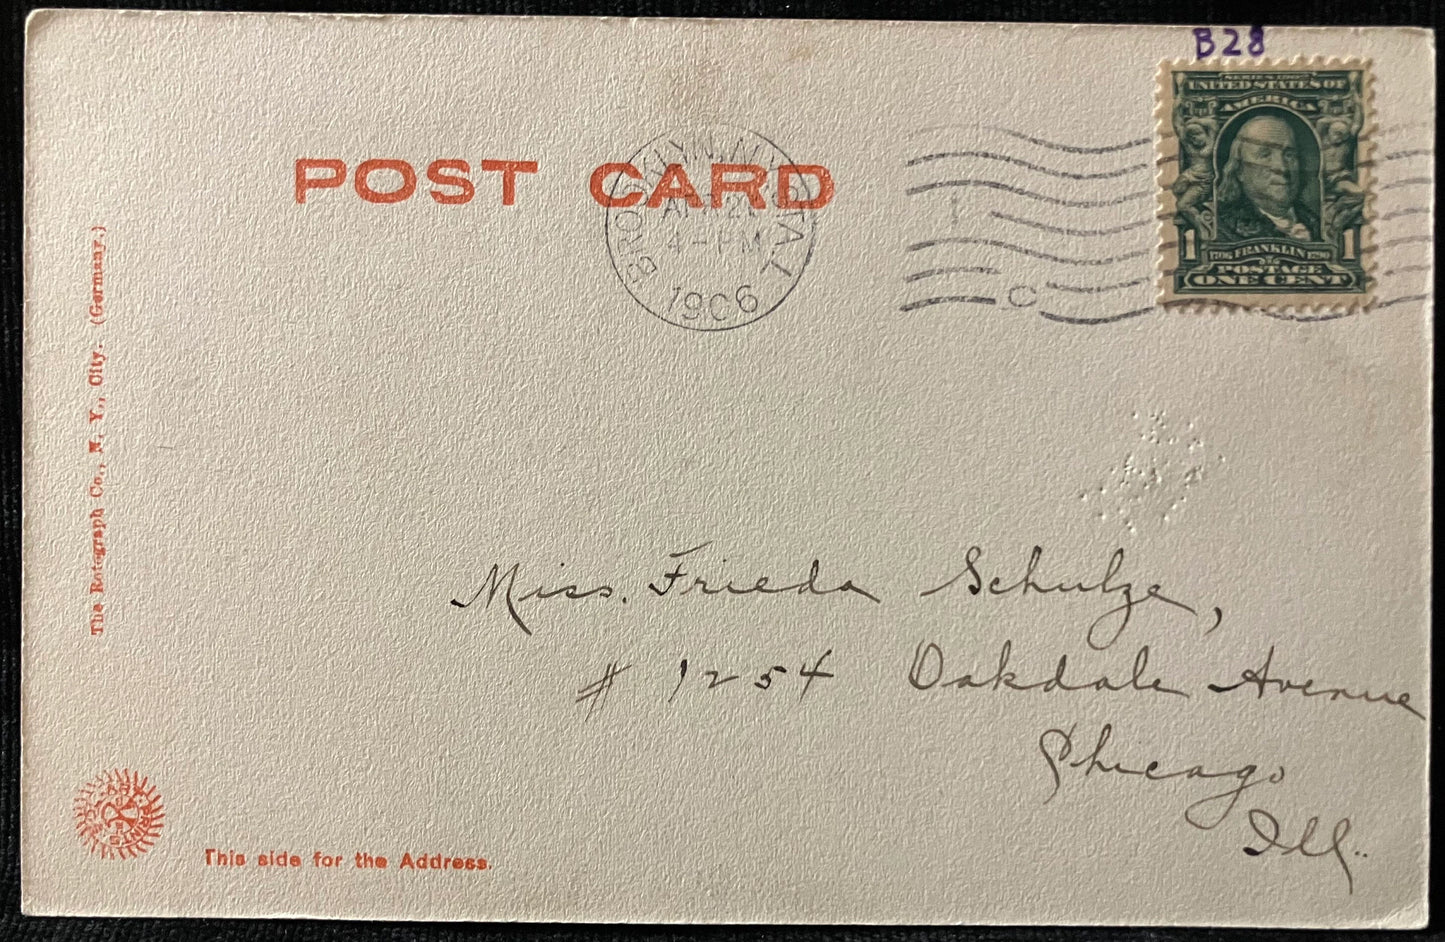 B28
SERIES 1902
UNITED STATES OF
AMERICA
1 1
1706 FRANKLIN 1790
POSTAGE
ONE CENT
POST CARD
BROOKLYN, N.Y. STA. L
4-PM
1906
C
The Rotograph Co., N. Y., City. (Germany.)
Miss. Frieda Schulze,
# 1254 Oakdale Avenue
Chicago
Ill.
This side for the Address.